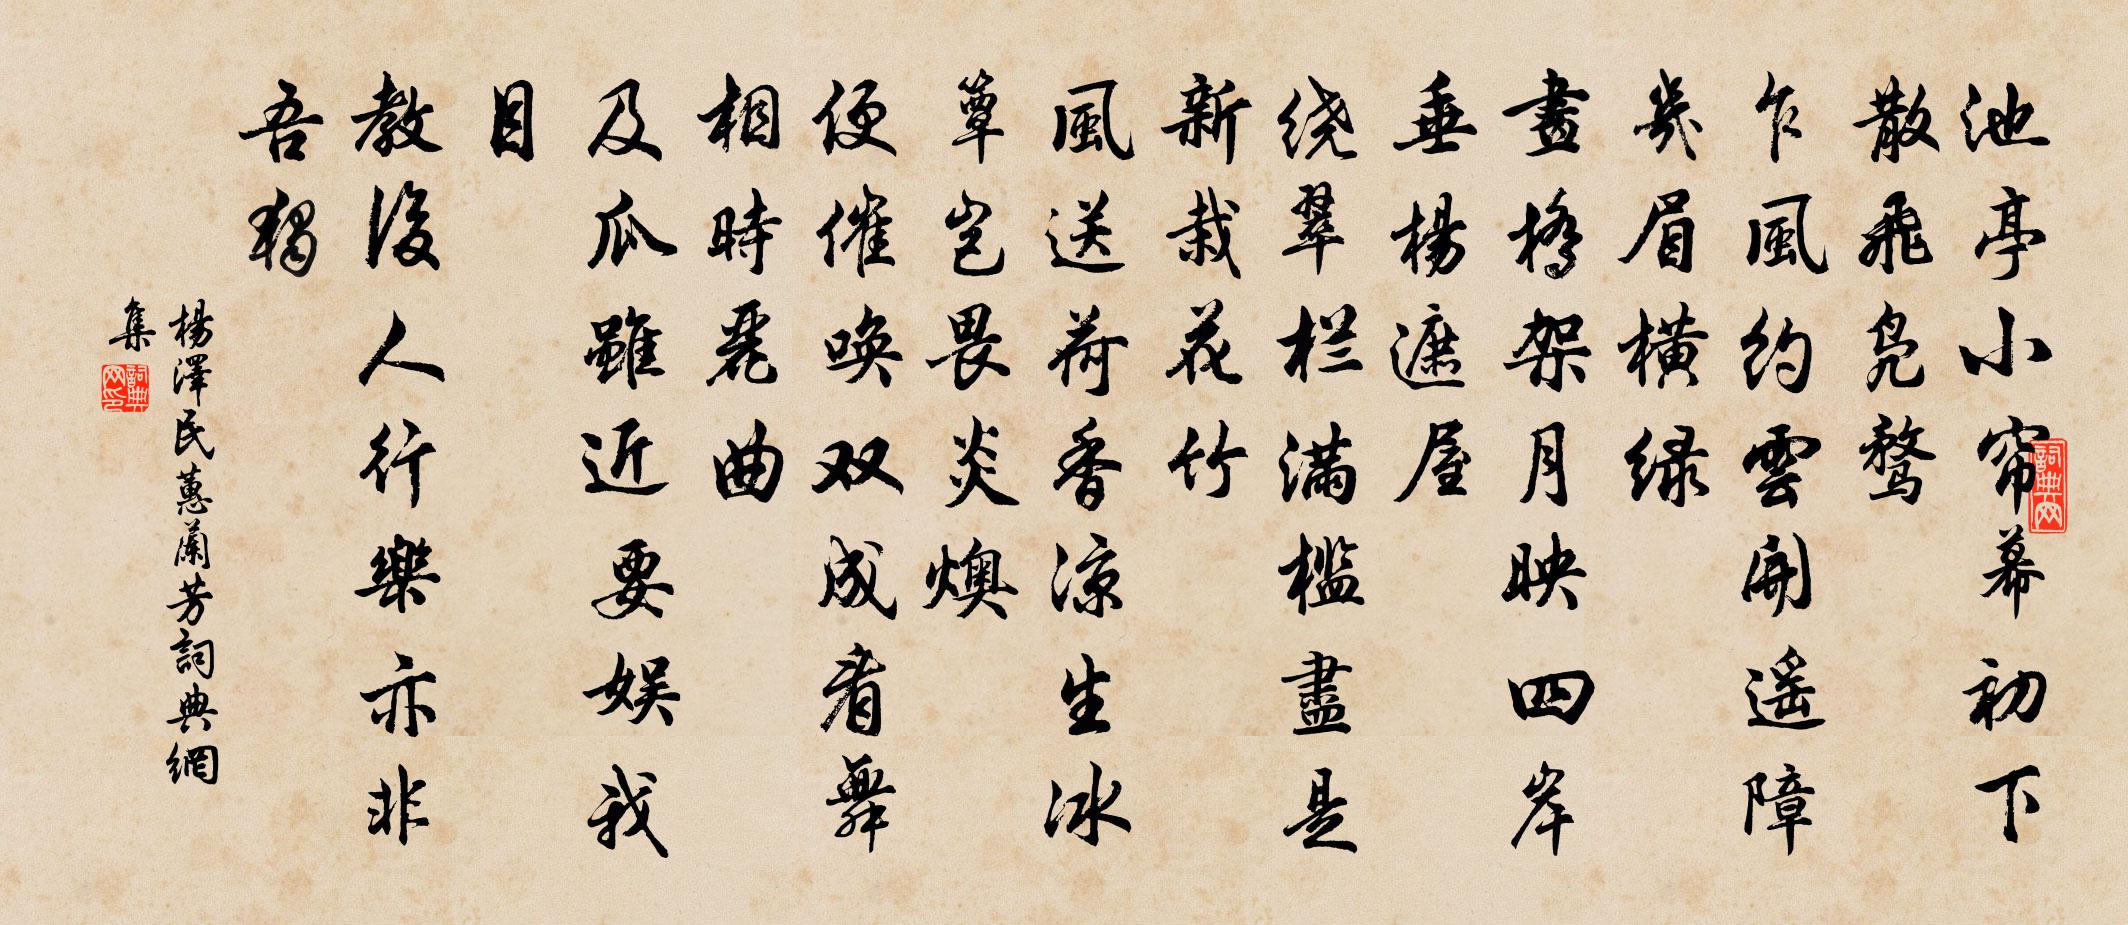 池亭小帘幕初下
散飛鳧鶩
乍風約雲開遥障
幾眉橫绿
畫橋架月映四岸
垂楊遮屋
绕翠栏滿槛盡是
新栽花竹
風送荷香涼生冰
簟岂畏炎燠
便催唤双成看舞
相時麗曲
及瓜雖近要娱我
目
教後人行樂亦非
吾獨
楊澤民蕙蘭芳詞典網
集
詞典网
詞典网印